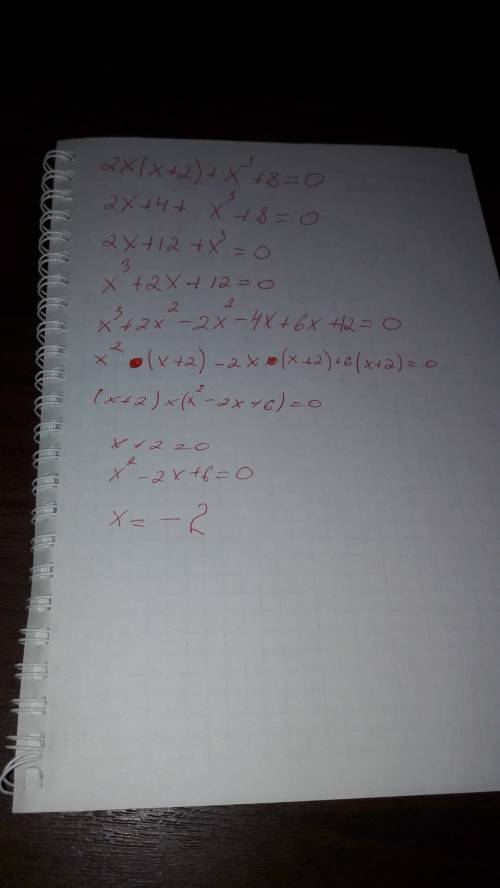 2x(x+2)+x³+8=0
2x+4+ x³+8=0
2x+12+x³=0
x³+2x+12=0
x³+2x²-2x²-4x+6x+12=0
x²•(x+2)-2x•(x+2)+6(x+2)=0
(x+2)×(x²-2x+6)=0
x+2=0
x²-2x+6=0
x=-2